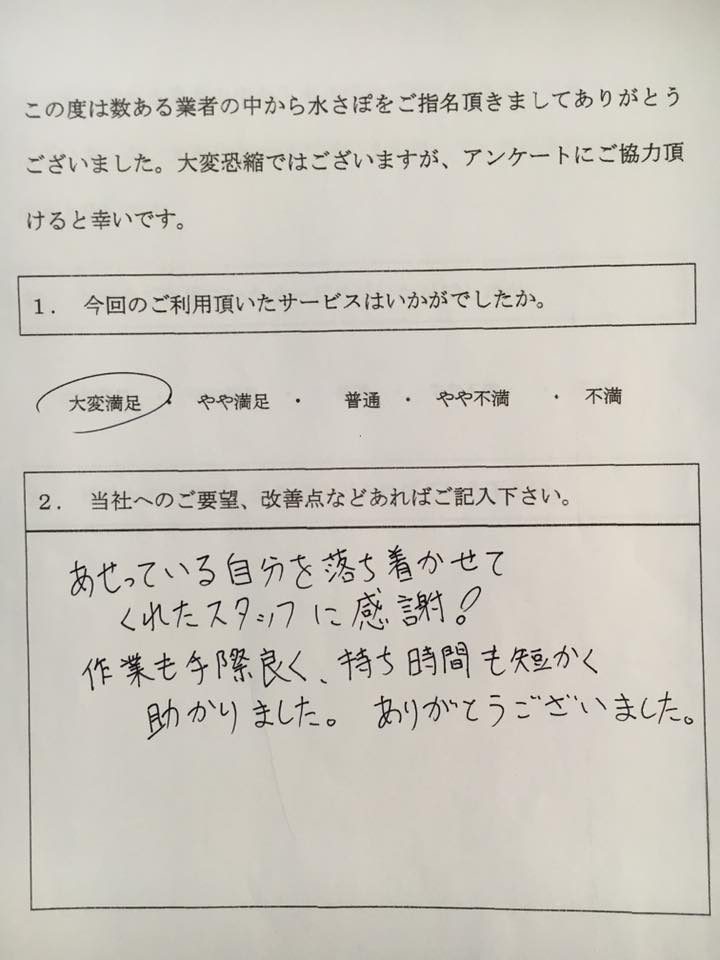 この度は数ある業者の中から水さぽをご指名頂きましてありがとう
ございました。大変恐縮ではございますが、アンケートにご協力頂
けると幸いです。
1． 今回のご利用頂いたサービスはいかがでしたか。
大変満足 ・ やや満足 ・ 普通 ・ やや不満 ・ 不満
2． 当社へのご要望、改善点などあればご記入下さい。
あせっている自分を落ち着かせて
くれたスタッフに感謝！
作業も手際良く、持ち時間も短かく
助かりました。 ありがとうございました。